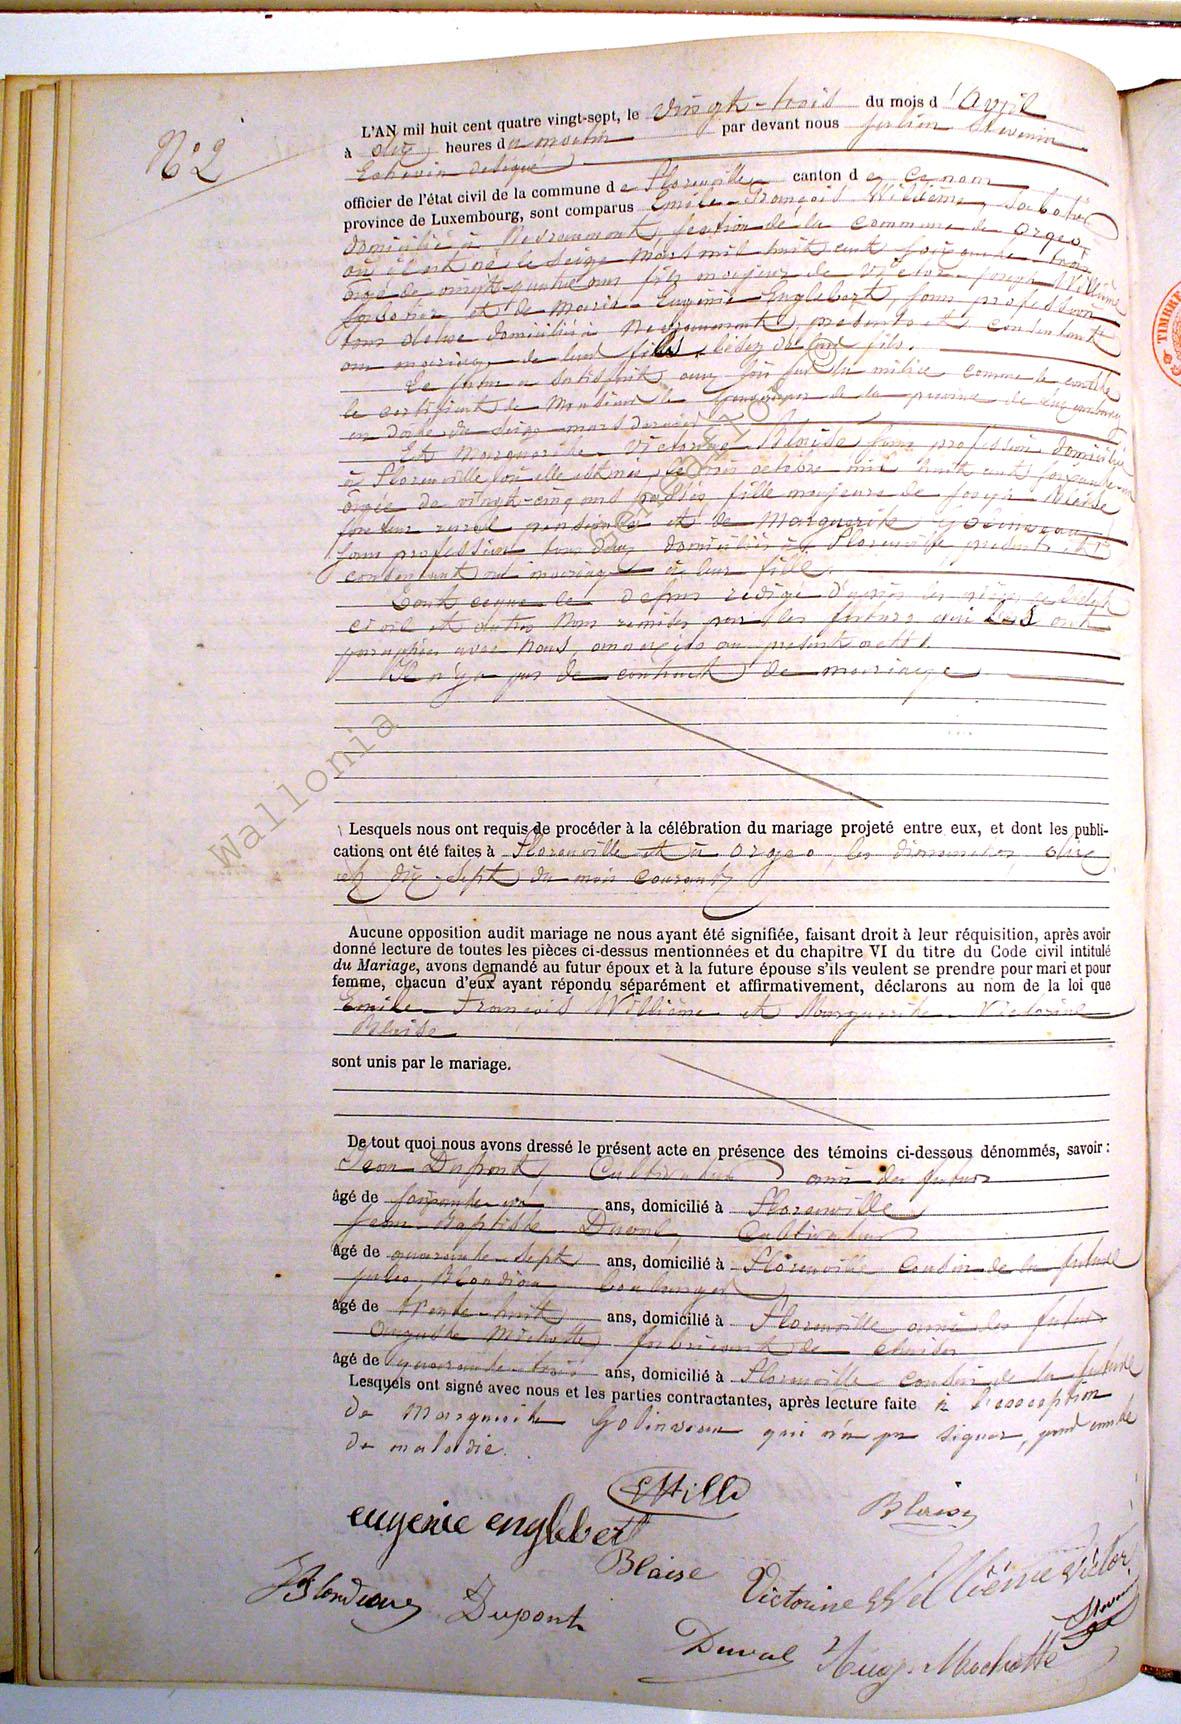 N° 2
L'AN mil huit cent quatre vingt-sept, le vingt-trois du mois d'Avril
à dix heures du matin par devant nous Julien Stevenin
Echevin délégué
officier de l'état civil de la commune de Florenville canton de
province de Luxembourg, sont comparus Emile-François Willième, sabotier
domicilié à Nevraumont, section de la commune de Orgeo,
où il est né le seize mars mil huit cent soixante-trois
âgé de vingt-quatre ans fils majeur de Victor-Joseph Willième
sabotier et de Marie-Eugénie Englebert, sans profession
tous deux domiciliés à Nevraumont, présents et consentant
au mariage de leur fils.
Le futur a satisfait aux lois sur la milice comme le constate
le certificat de Monsieur le Gouverneur de la province de Luxembourg
en date du seize mars dernier
Et Marguerite-Victorine Blaise sans profession domiciliée
à Florenville où elle est née, le octobre mil huit cent soixante-un
âgée de vingt-cinq ans passés, fille majeure de Joseph Blaise
facteur rural pensionné et de Marguerite Golinvaux
sans profession tous deux domiciliés à Florenville présents et
consentant au mariage de leur fille.
Tout ce que dessus rédigé d'après les actes de l'état
civil et autres nous remises par les futurs qui les ont
paraphées avec nous, annexées au présent acte.
Il n'y a pas de contrat de mariage
Lesquels nous ont requis de procéder à la célébration du mariage projeté entre eux, et dont les publi-
cations ont été faites à Florenville et à Orgeo, les dimanches, dix
et dix-sept du mois courant
Aucune opposition audit mariage ne nous ayant été signifiée, faisant droit à leur réquisition, après avoir
donné lecture de toutes les pièces ci-dessus mentionnées et du chapitre VI du titre du Code civil intitulé
du Mariage, avons demandé au futur époux et à la future épouse s'ils veulent se prendre pour mari et pour
femme, chacun d'eux ayant répondu séparément et affirmativement, déclarons au nom de la loi que
Emile-François Willième et Marguerite-Victorine
Blaise
sont unis par le mariage.
De tout quoi nous avons dressé le présent acte en présence des témoins ci-dessous dénommés, savoir :
Jean Dupont, Cultivateur ami des futurs
âgé de soixante-un ans, domicilié à Florenville
Jean-Baptiste Duval, Cultivateur
âgé de quarante-sept ans, domicilié à Florenville cousin de la future
Jules Blondiau boulanger
âgé de trente-huit ans, domicilié à Florenville ami des futurs
Auguste Michotte, fabricant de chaises
âgé de quarante-trois ans, domicilié à Florenville cousin de la future
Lesquels ont signé avec nous et les parties contractantes, après lecture faite à l'exception
de Marguerite Golinvaux qui n'a pu signer, pour cause
de maladie.
EWille
Blaise
eugenie englebert
Blaise
Victorine Willième Victor
JBlondiau
Dupont
Duval
Aug. Michotte
Stevenin
Wallonia
Genealogy ©
TIMBRE